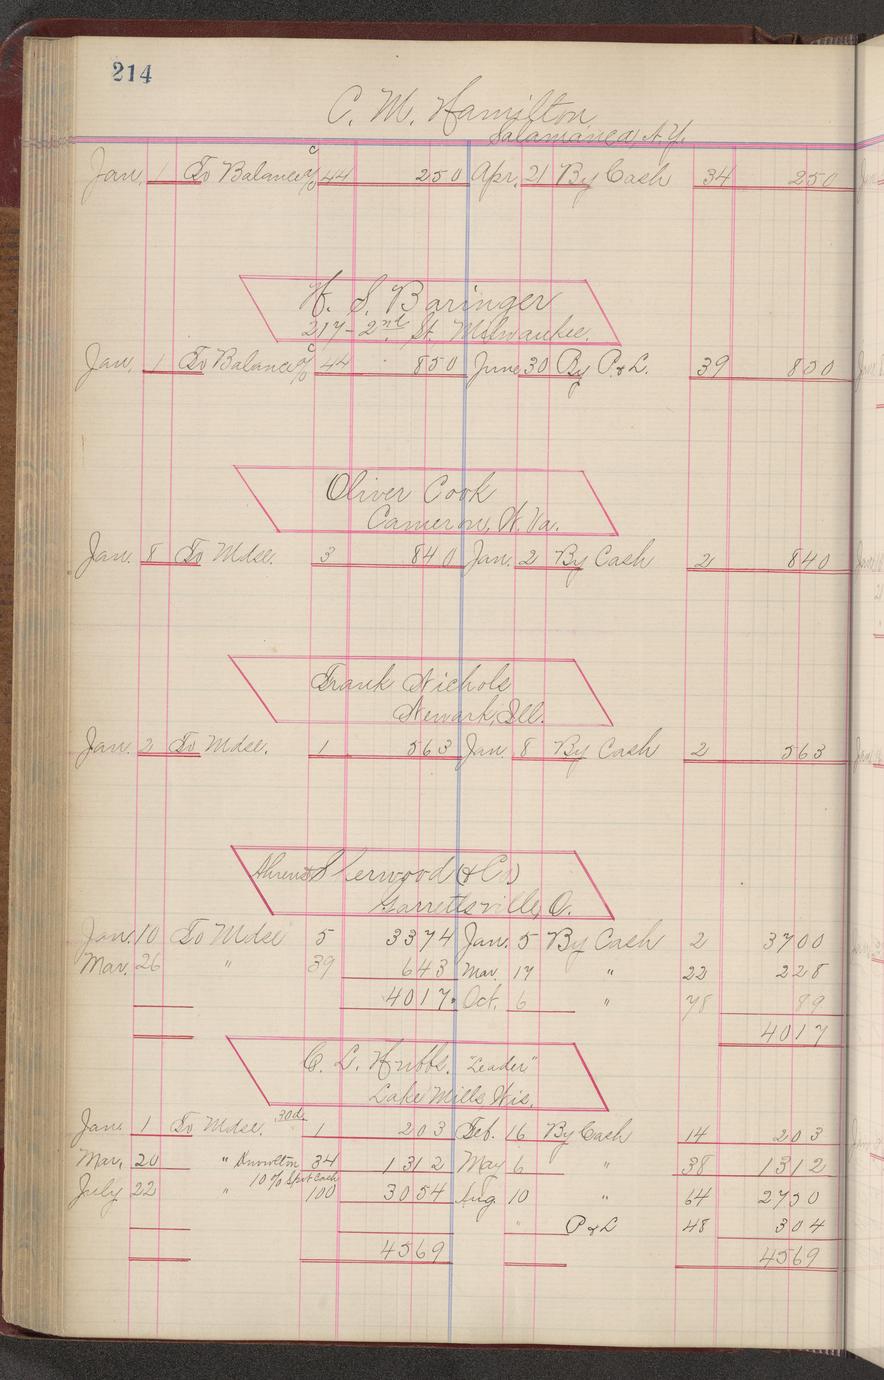 214
C. M. Hamilton
Salamanca, N.Y.
Jan. 1 To Balance c/o 44 250 Apr. 21 By Cash 34 250
H. S. Baringer
217-2nd. St. Milwaukee.
Jan. 1 To Balance c/o 44 850 June 30 By P. & L. 39 850
Oliver Cook
Cameron, W. Va.
Jan. 8 To Mdse. 3 840 Jan. 2 By Cash 2 840
Frank Nichols
Newark, Ill.
Jan. 2 To Mdse. 1 563 Jan. 8 By Cash 2 563
Sherwood (& Co)
Garrettsville, O.
Jan. 10 To Mdse 5 3374 Jan. 5 By Cash 2 3700
Mar. 26 " 39 643 Mar. 17 " 22 228
4017 Oct. 6 " 78 89
4017
C. L. Hubbs. "Leader"
Lake Mills Wis.
Jan. 1 To Mdse. 30d. 1 203 Feb. 16 By Cash 14 203
Mar. 20 " 34 1312 May 6 " 38 1312
July 22 " 10% Spot Cash 100 3054 Aug. 10 " 64 2750
" P & L 48 304
4569 4569